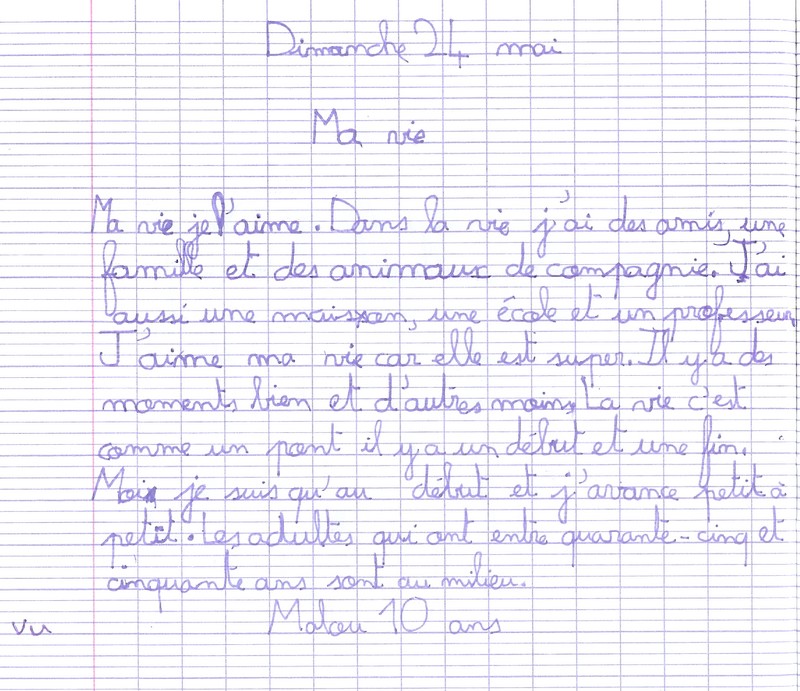 Dimanche 24 mai
Ma vie
Ma vie je l'aime. Dans la vie j'ai des amis, une
famille et des animaux de compagnie. J'ai
aussi une maison, une école et un professeur
J'aime ma vie car elle est super. Il y a des
moments bien et d'autres moins. La vie c'est
comme un pont il y a un début et une fin.
Moi je suis qu'au début et j'avance petit à
petit. Les adultes qui ont entre quarante-cinq et
cinquante ans sont au milieu.
Malou 10 ans
vu